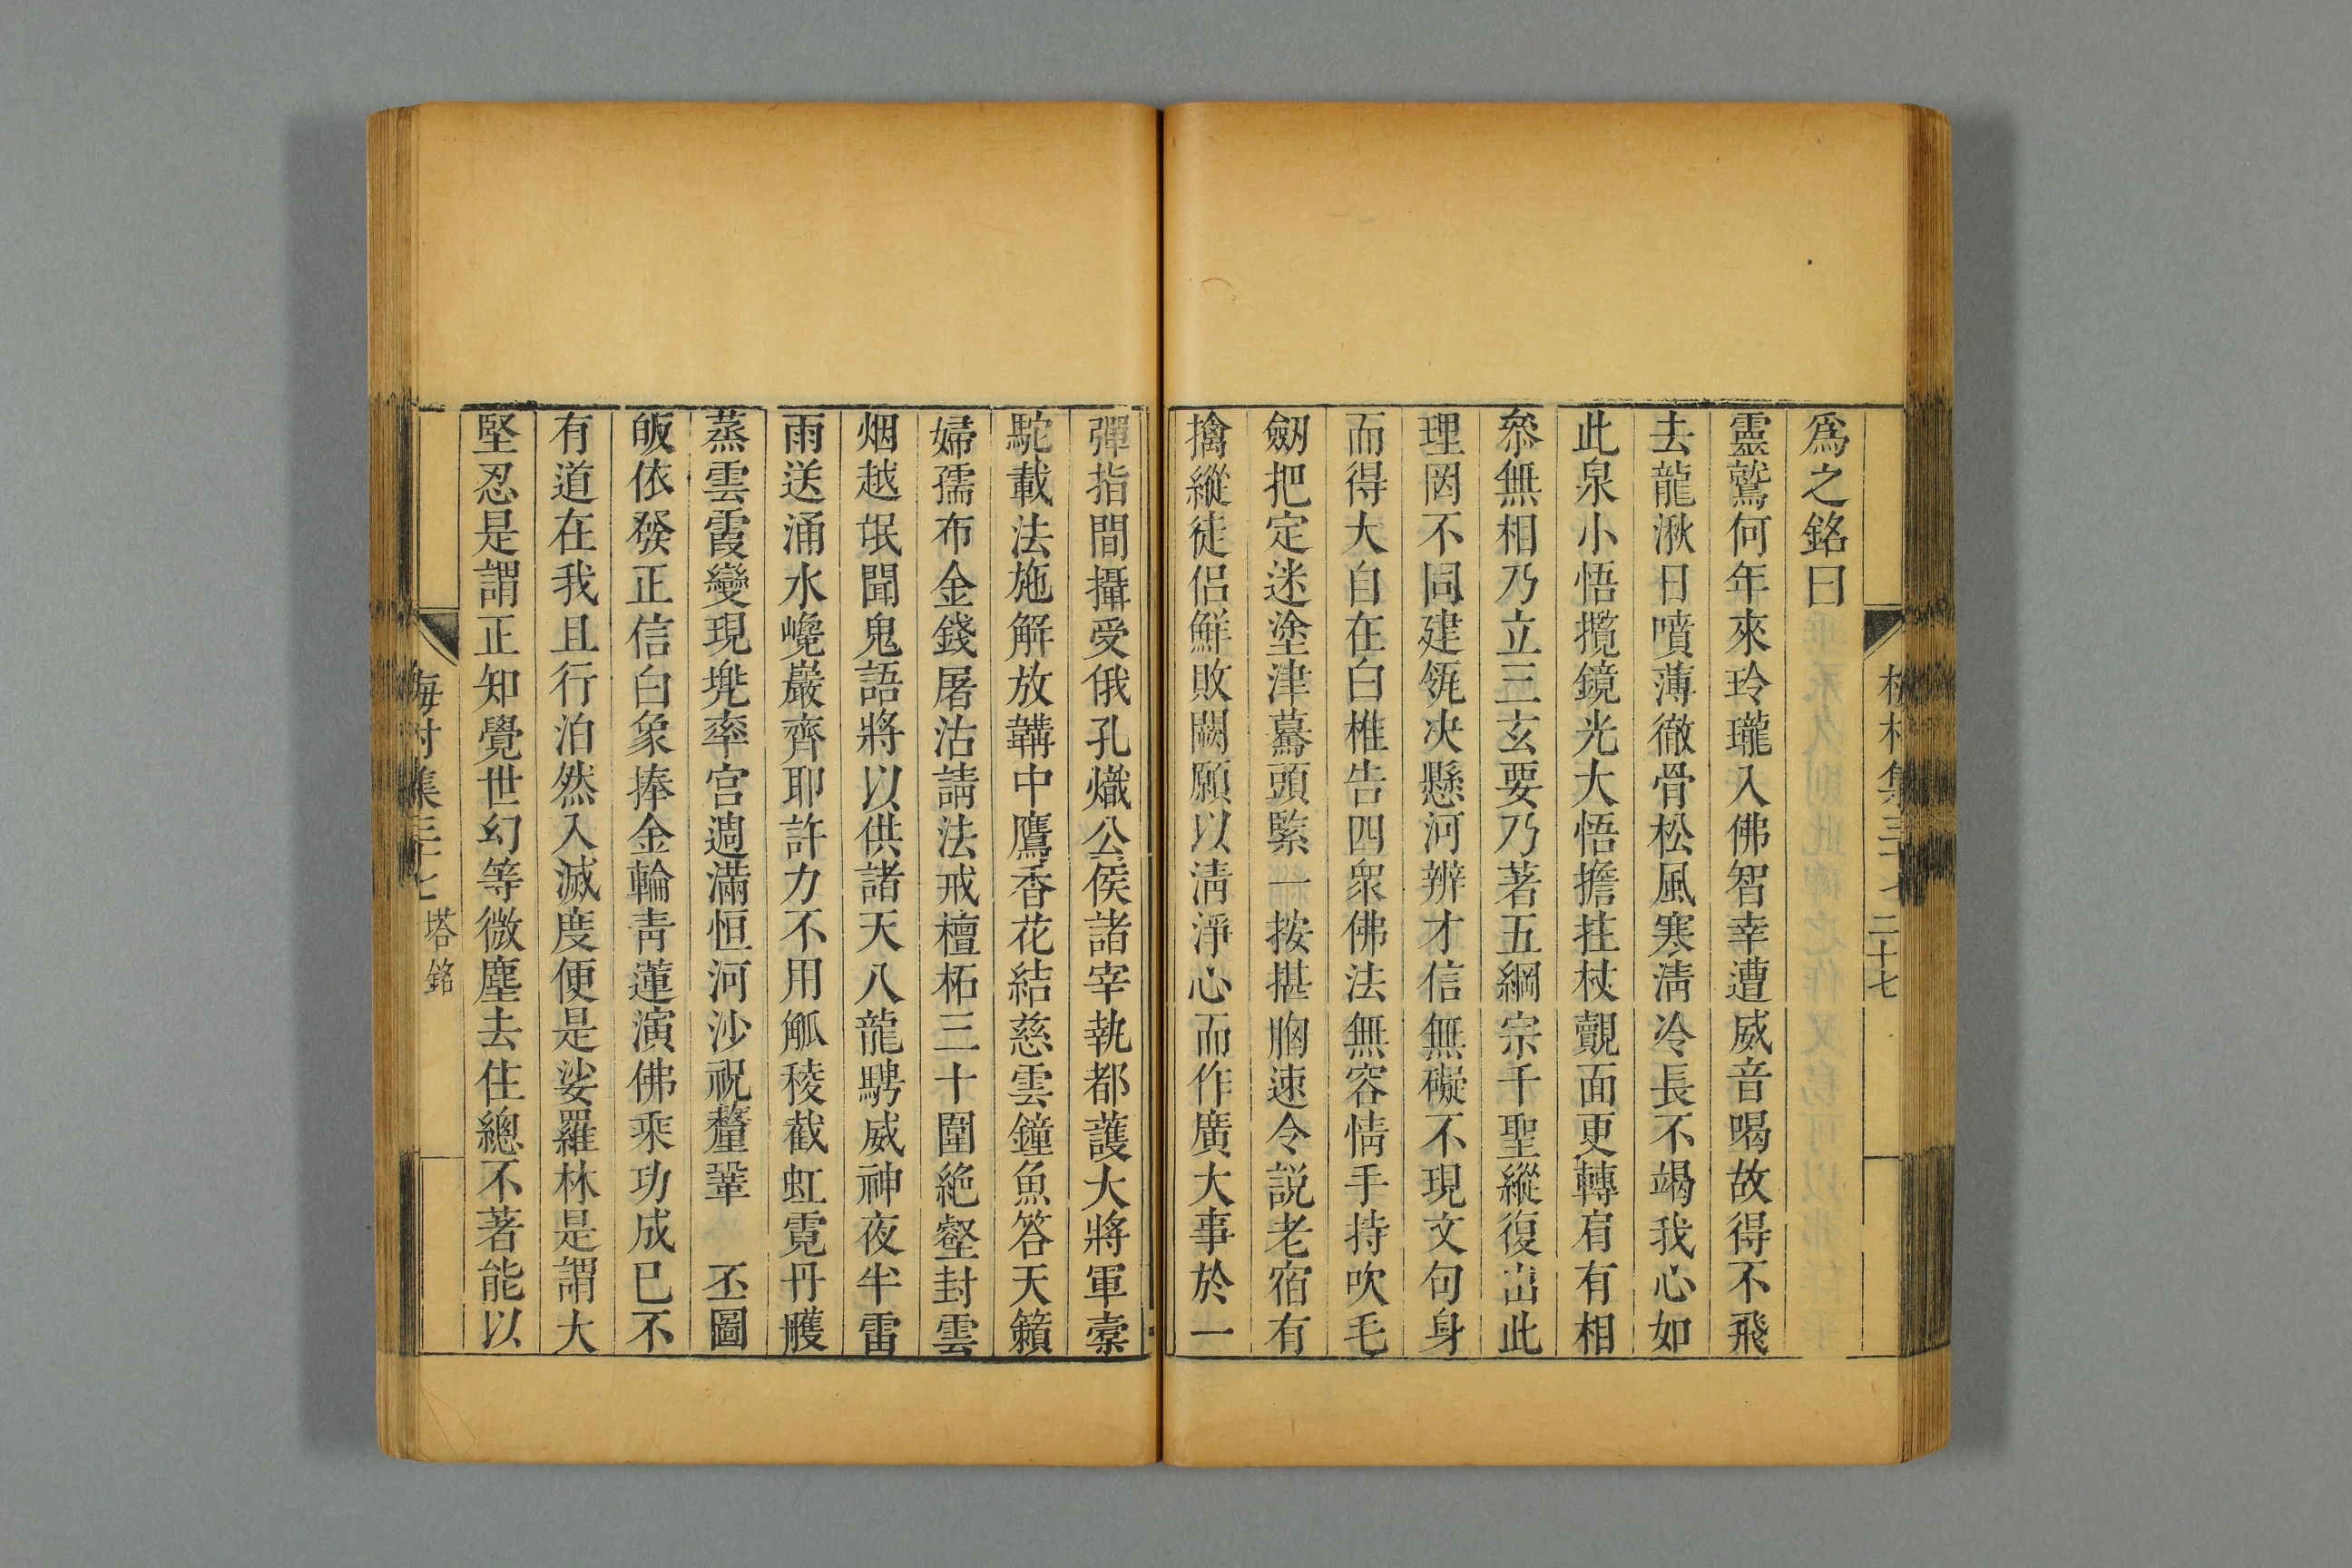 爲之銘曰
靈鷲何年來玲瓏入佛智幸遭威音喝故得不飛
去龍湫日噴薄徹骨松風寒淸冷長不竭我心如
此泉小悟攬鏡光大悟擔拄杖覿面更轉肩有相
叅無相乃立三玄要乃著五綱宗千聖縱復出此
理罔不同建瓴决懸河辨才信無礙不現文句身
而得大自在白椎告四衆佛法無容情手持吹毛
劒把定迷塗津驀頭緊一按揕胸速令説老宿有
擒縱徒侶鮮敗闕願以淸淨心而作廣大事於一
彈指間攝受俄孔熾公侯諸宰執都護大將軍櫜
駝載法施解放鞲中鷹香花結慈雲鐘魚答天籟
婦孺布金錢屠沽請法戒檀柘三十圍絶壑封雲
烟越氓聞鬼語將以供諸天八龍騁威神夜半雷
雨送涌水巉巖齊耶許力不用觚稜截虹霓丹雘
蒸雲霞變現兠率宮週滿恒河沙祝釐鞏 丕圖
皈依發正信白象捧金輪靑蓮演佛乘功成已不
有道在我且行泊然入滅度便是娑羅林是謂大
堅忍是謂正知覺世幻等微塵去住總不著能以
梅村集三十七 塔銘
二十七